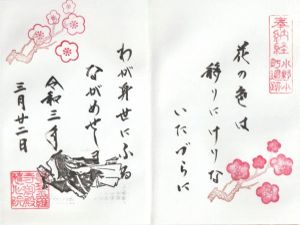 奉納経
花の色は
移りにけりな
いたづらに
わが身世にふる
ながめせし
令和三年
三月廿二日